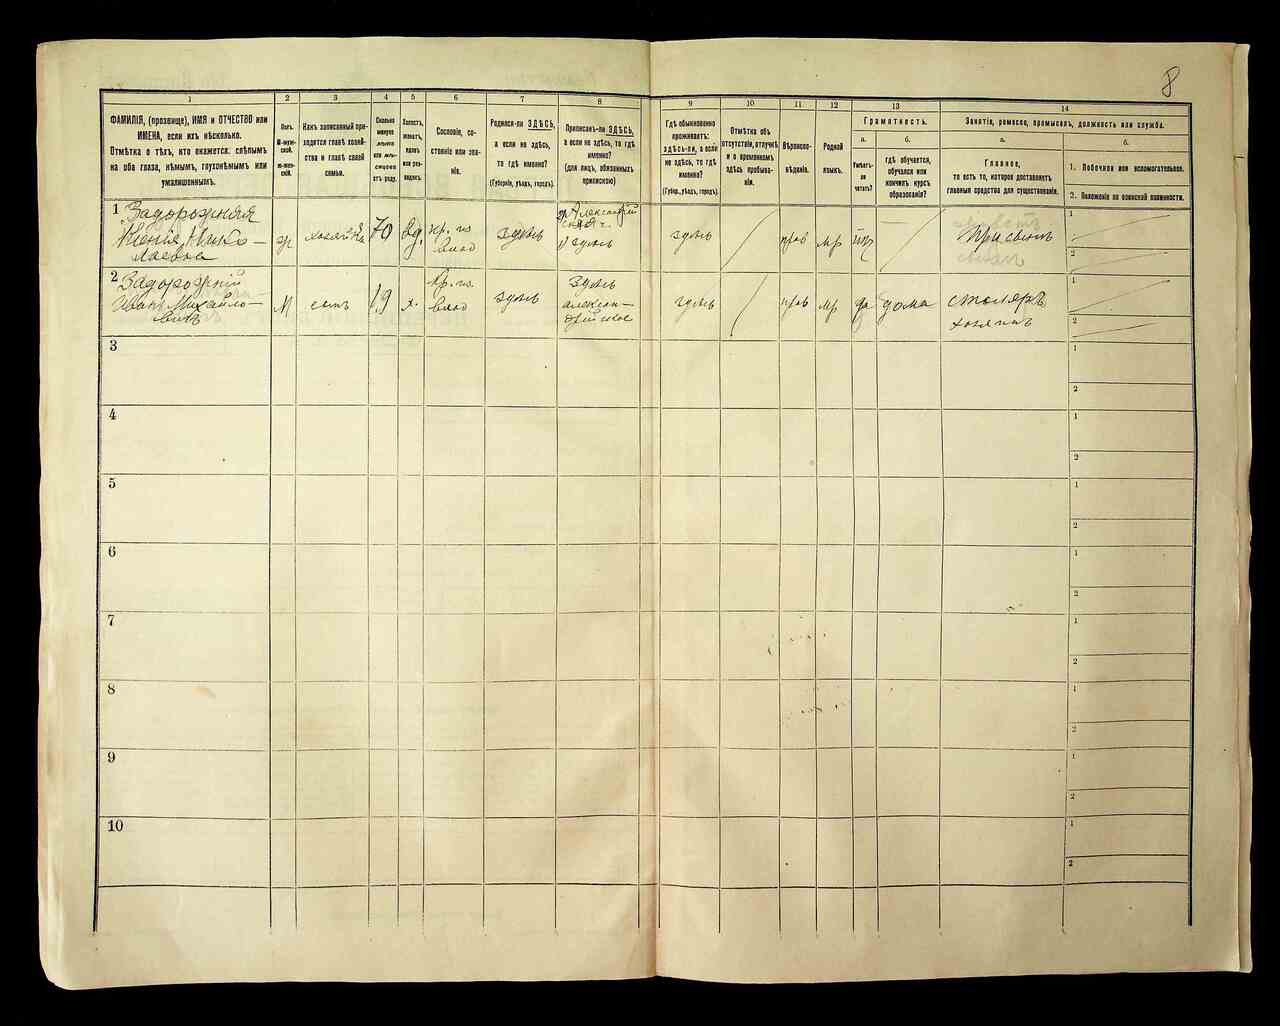 8
1
2
3
4
5
6
7
8
9
10
11
12
13
14
ФАМИЛІЯ, (прозвище), ИМЯ и ОТЧЕСТВО или
ИМЕНА, если ихъ нѣсколько.
Отмѣтка о тѣхъ, кто окажется: слѣпымъ
на оба глаза, нѣмымъ, глухонѣмымъ или
умалишеннымъ.
Полъ.
М-муж-
ской.
Ж-жен-
скій.
Какъ записанный при-
ходится главѣ хозяй-
ства и главѣ своей
семьи.
Сколько
минуло
лѣтъ
или мѣ-
сяцевъ
отъ роду.
Холостъ,
женатъ,
вдовъ
или раз-
веденъ.
Сословіе, со-
стояніе или зва-
ніе.
Родился-ли ЗДѢСЬ,
а если не здѣсь,
то гдѣ именно?
(Губернія, уѣздъ, городъ).
Приписанъ-ли ЗДѢСЬ,
а если не здѣсь, то гдѣ
именно?
(для лицъ, обязанныхъ
припискою)
Гдѣ обыкновенно
проживаетъ:
здѣсь-ли, а если
не здѣсь, то гдѣ
именно?
(Губер., уѣздъ, городъ).
Отмѣтка объ
отсутствіи, отлучкѣ
и о временномъ
здѣсь пребыва-
ніи.
Вѣроиспо-
вѣданіе.
Родной
языкъ.
Грамотность.
а.
б.
Умѣетъ-
ли
читать?
гдѣ обучается,
обучался или
кончилъ курсъ
образованія?
Занятіе, ремесло, промыселъ, должность или служба.
а.
б.
Главное,
то есть то, которое доставляетъ
главныя средства для существованія.
1. Побочное или вспомогательное.
2. Положеніе по воинской повинности.
1 Задорожняя
Ксенія Нико-
лаевна
ж
хозяйка
70
вд.
кр. из
влад
здѣсь
здѣсь
здѣсь
прав
мр
нѣт
При сынѣ
1
2
2 Задорожній
Иванъ Михайло-
вичъ
М
сынъ
19
х.
кр. из
влад
здѣсь
Здѣсь
алексан-
дрійское
здѣсь
прав
мр
да
дома
столяръ
хозяинъ
1
2
3
1
2
4
1
2
5
1
2
6
1
2
7
1
2
8
1
2
9
1
2
10
1
2